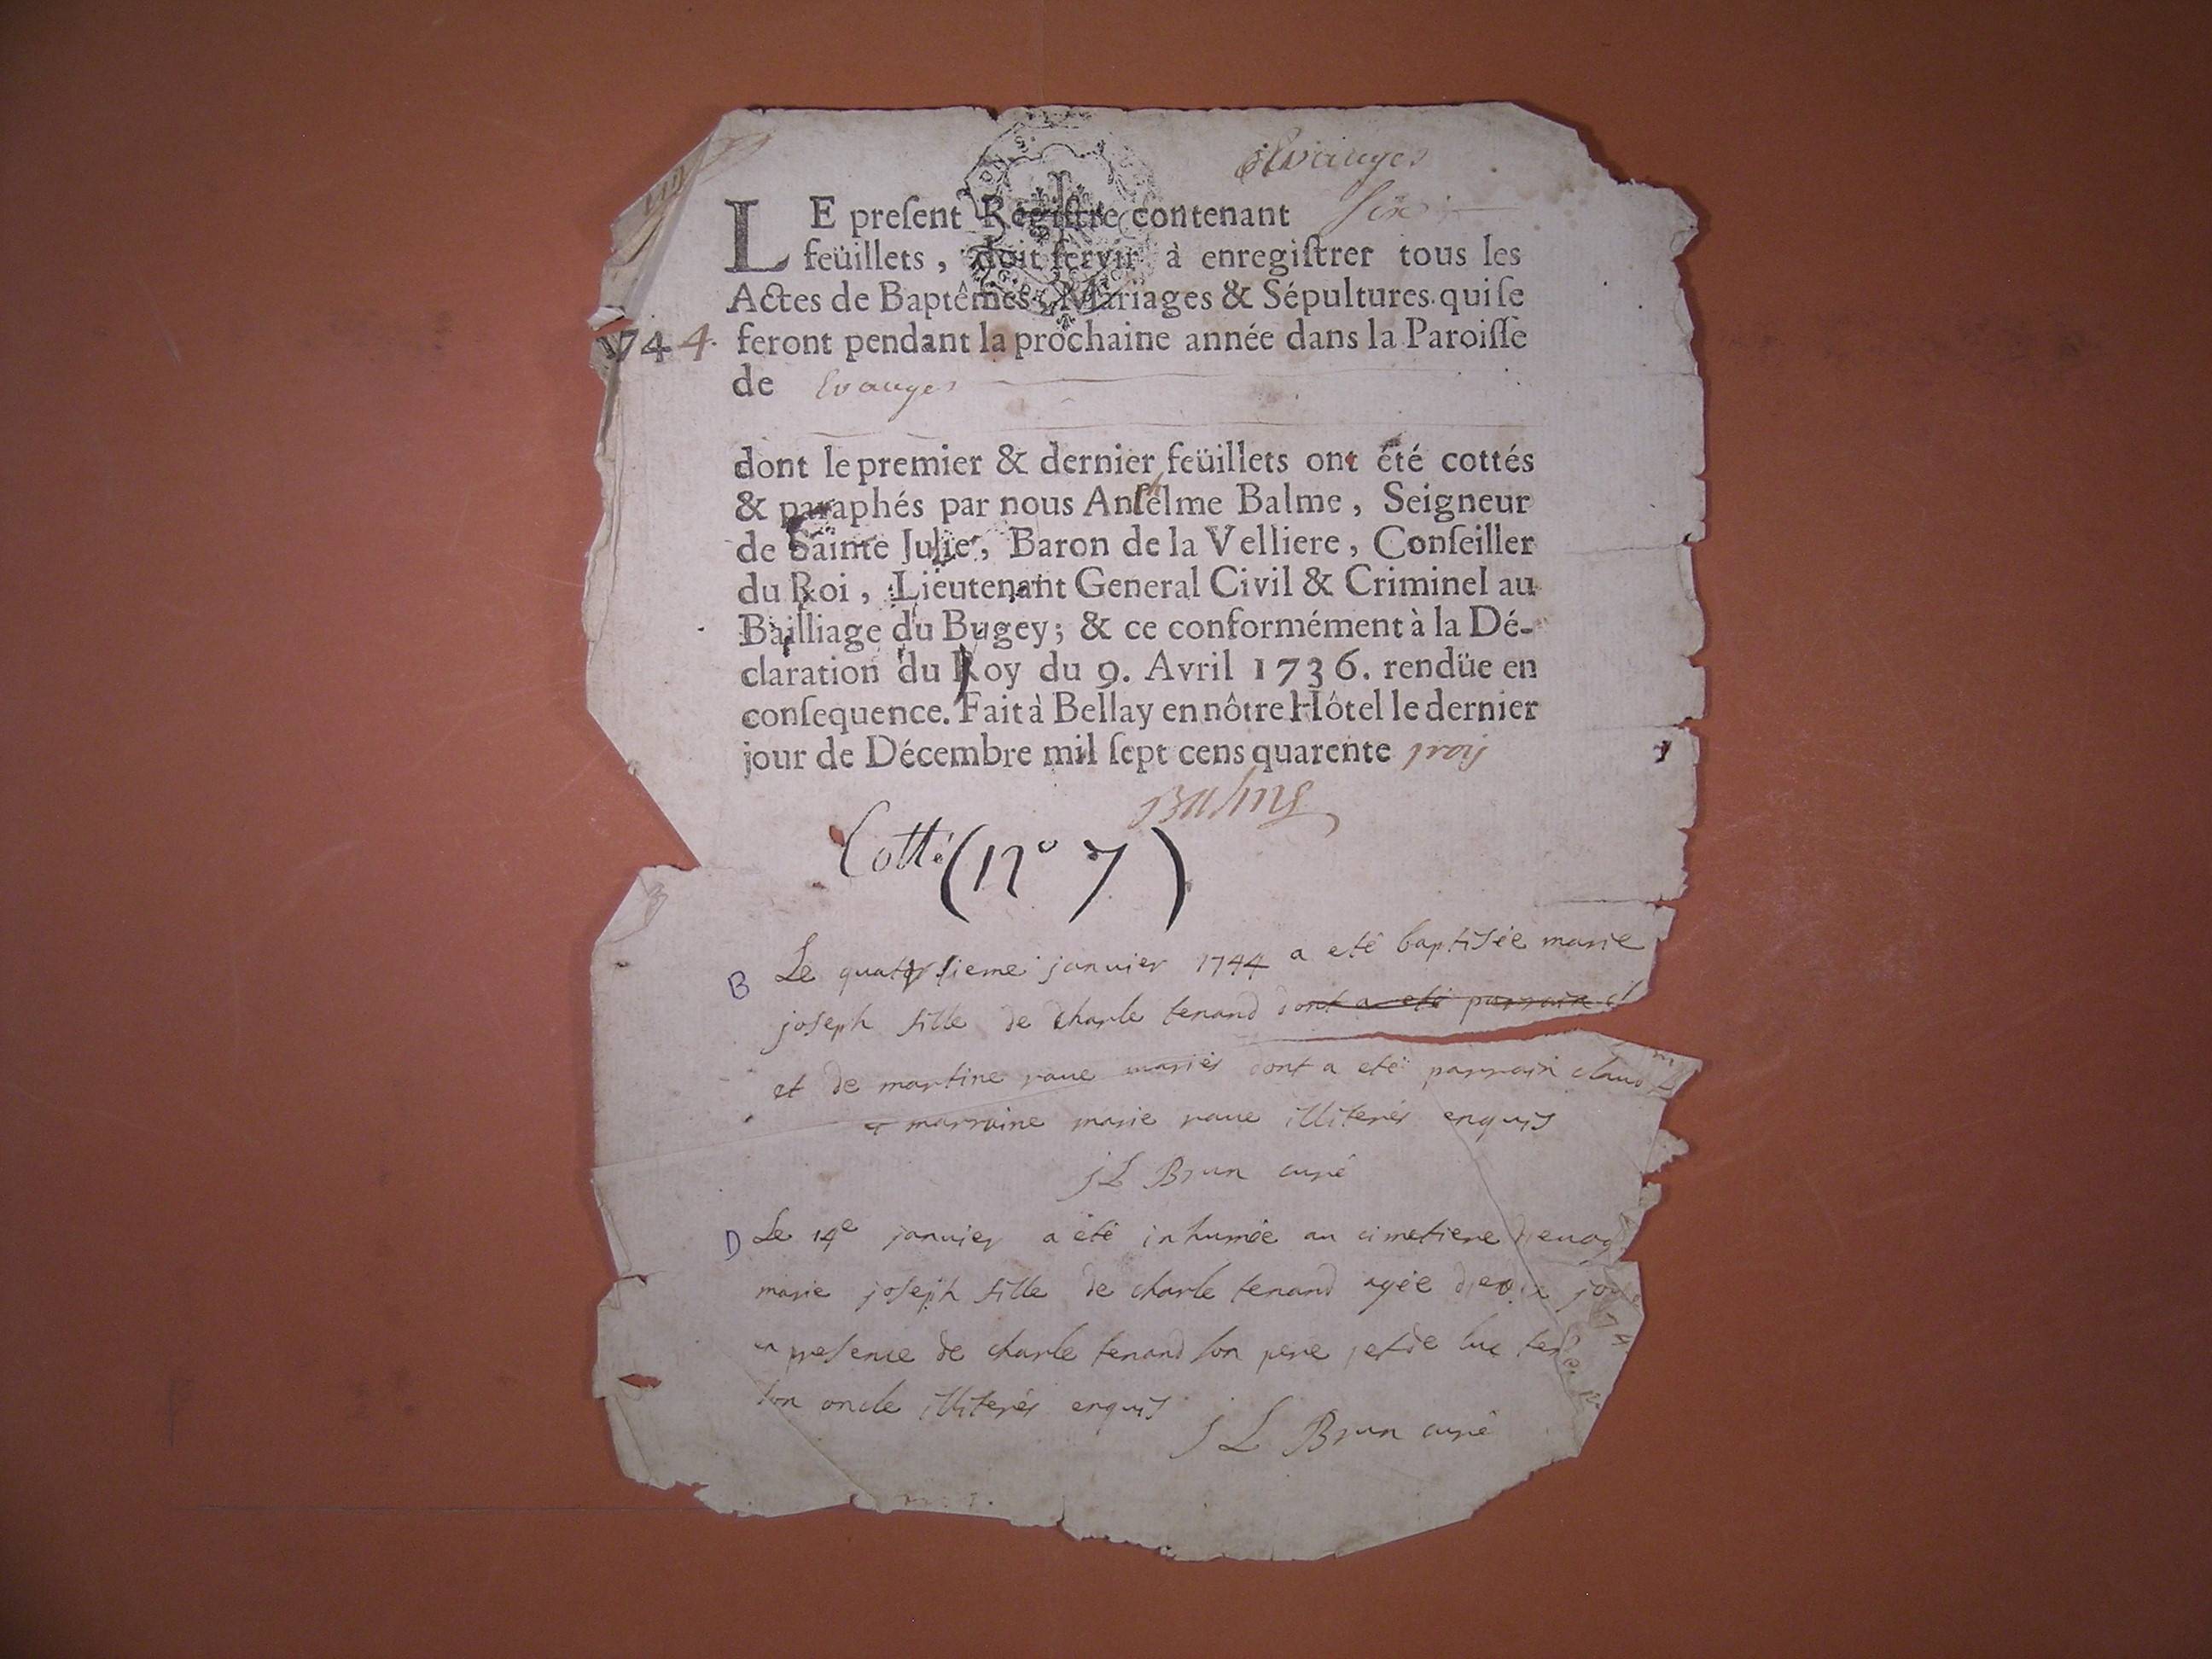 Evauges
LE preſent Regiſtre contenant six
feüillets, doit ſervir à enregiſtrer tous les
Actes de Baptêmes, Mariages & Sépultures qui ſe
1744. feront pendant la prochaine année dans la Paroiſſe
de Evauges
dont le premier & dernier feüillets ont été cottés
& paraphés par nous Anſelme Balme, Seigneur
de Sainte Julie, Baron de la Velliere, Conſeiller
du Roi, Lieutenant General Civil & Criminel au
Bailliage du Bugey; & ce conformément à la Dé-
claration du Roy du 9. Avril 1736. rendüe en
conſequence. Fait à Bellay en nôtre Hôtel le dernier
jour de Décembre mil ſept cens quarente trois
Balme
Cotté (N° 7)
B Le quatrsieme janvier 1744 a eté baptisée marie
joseph fille de charle tenand dont a eté parrain et
et de martine raue mariés dont a eté parrain claud
et marraine marie raue illiterés enquis
j L Brun curé
D Le 14e janvier a été inhumée au cimetiere
marie joseph fille de charle tenand agée
en presence de charle tenand son pere et de luc
son oncle illiterés enquis j L Brun curé